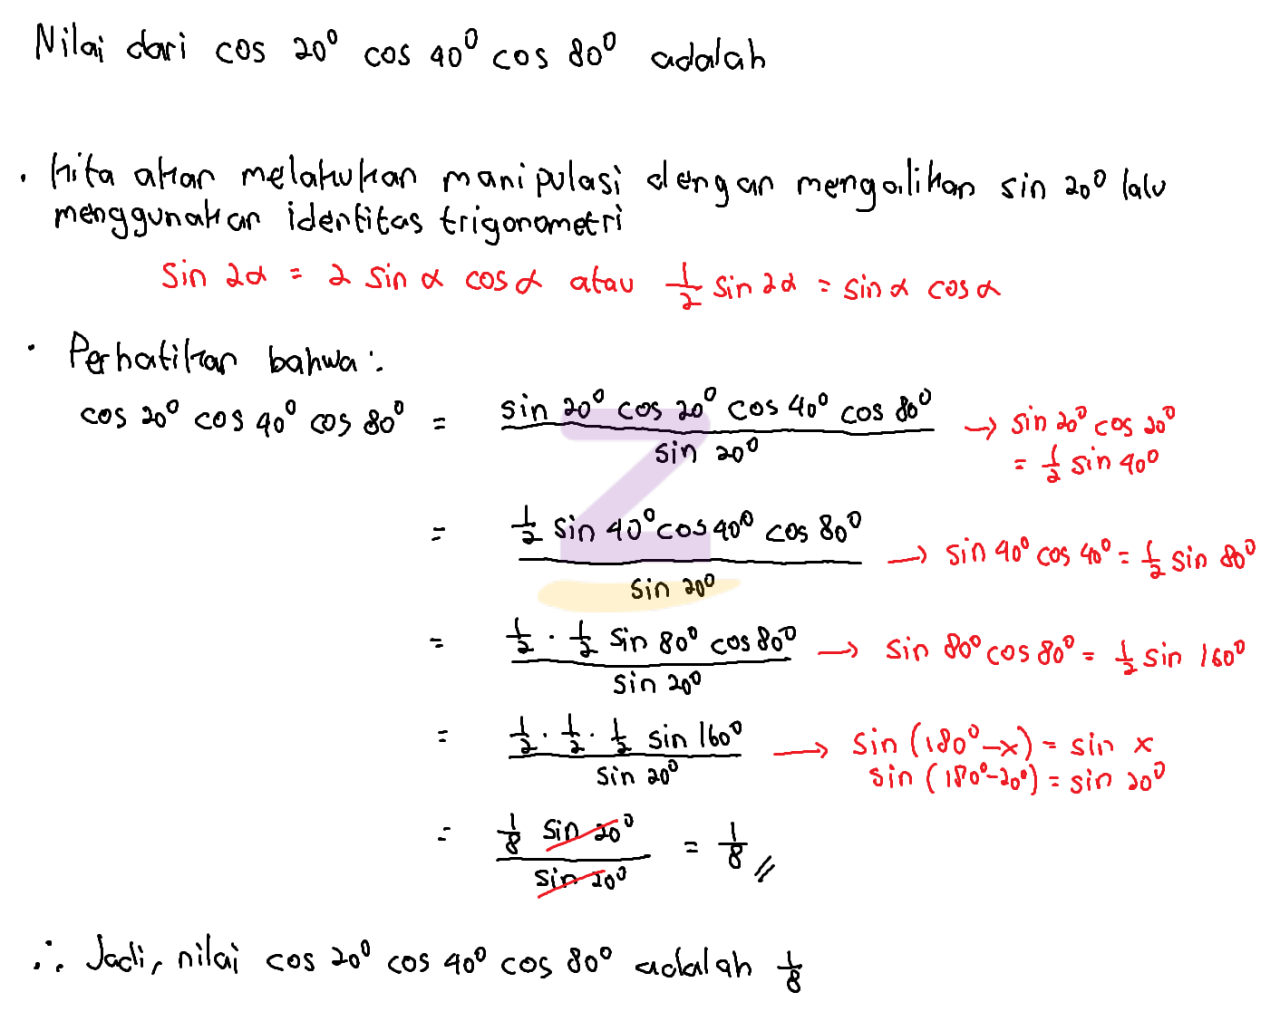 Nilai dari cos 20° cos 40° cos 80° adalah
· Kita akan melakukan manipulasi dengan mengalikan sin 20° lalu
menggunakan identitas trigonometri
sin 2α = 2 sin α cos α atau 1/2 sin 2α = sin α cos α
· Perhatikan bahwa:
cos 20° cos 40° cos 80° = (sin 20° cos 20° cos 40° cos 80°)/(sin 20°) → sin 20° cos 20°
= 1/2 sin 40°
= (1/2 sin 40° cos 40° cos 80°)/(sin 20°) → sin 40° cos 40° = 1/2 sin 80°
= (1/2 · 1/2 sin 80° cos 80°)/(sin 20°) → sin 80° cos 80° = 1/2 sin 160°
= (1/2 · 1/2 · 1/2 sin 160°)/(sin 20°) → sin (180° - x) = sin x
sin (180° - 20°) = sin 20°
= (1/8 sin 20°)/(sin 20°) = 1/8 //
∴ Jadi, nilai cos 20° cos 40° cos 80° adalah 1/8
Z